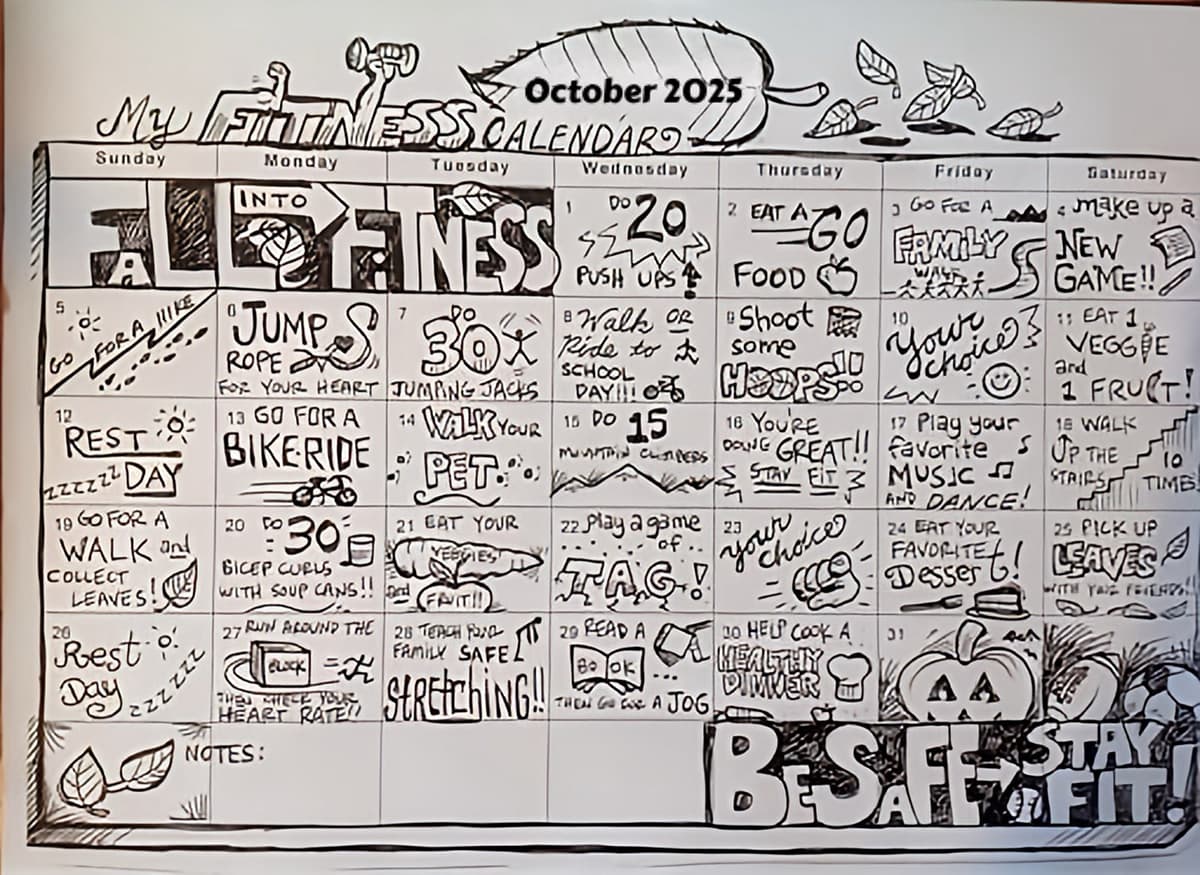 October 2025
My FITNESS CALENDAR
Sunday Monday Tuesday Wednesday Thursday Friday Saturday
FALL INTO FITNESS
1 DO 20
PUSH UPS
2 EAT A GO
FOOD
3 GO FOR A
FAMILY
WALK
4 make up a
NEW
GAME!!
5
GO FOR A HIKE
6 JUMP
ROPE
FOR YOUR HEART
7 DO
30
JUMPING JACKS
8 Walk OR
Ride to
SCHOOL
DAY!!!
9 Shoot
some
HOOPS!!
10
your
choice
11 EAT 1
VEGGIE
and
1 FRUIT!
12
REST
ZZZZZZ DAY
13 GO FOR A
BIKE-RIDE
14 WALK YOUR
PET.
15 DO 15
MOUNTAIN CLIMBERS
16 YOU'RE
DOING GREAT!!
STAY FIT
17 Play your
favorite
MUSIC
AND DANCE!
18 WALK
UP THE
STAIRS 10
TIMES
19 GO FOR A
WALK and
COLLECT
LEAVES!
20 DO 30
BICEP CURLS
WITH SOUP CANS!!
21 EAT YOUR
VEGGIES
and FRUIT!!
22 Play a game
of..
TAG!
23
your
choice
24 EAT YOUR
FAVORITE
Dessert!
25 PICK UP
LEAVES
WITH YOUR FRIENDS!!
26
Rest
Day
ZZZZZZ
27 RUN AROUND THE
BLOCK
THEN CHECK YOUR
HEART RATE!!
28 TEACH YOUR
FAMILY SAFE
STRETCHING!!
29 READ A
BOOK
THEN GO FOR A JOG
30 HELP COOK A
HEALTHY
DINNER
31
NOTES:
BE SAFE
STAY
FIT!